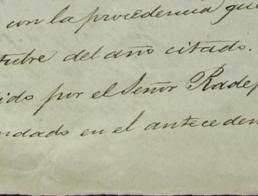 con la procedencia que
tubre del año citado.
ido por el Señor Radep
ndado en el anteceden